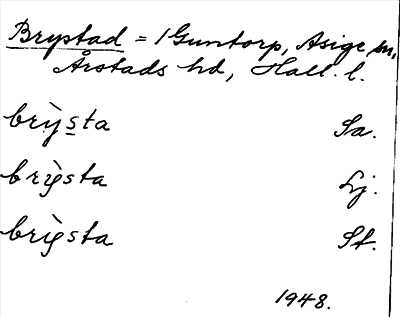 Brystad = 1 Guntorp, Asige sn,
Årstads hd, Hall. l.
brỳsta Sa.
brỳsta Lj.
brỳsta St.
1948.